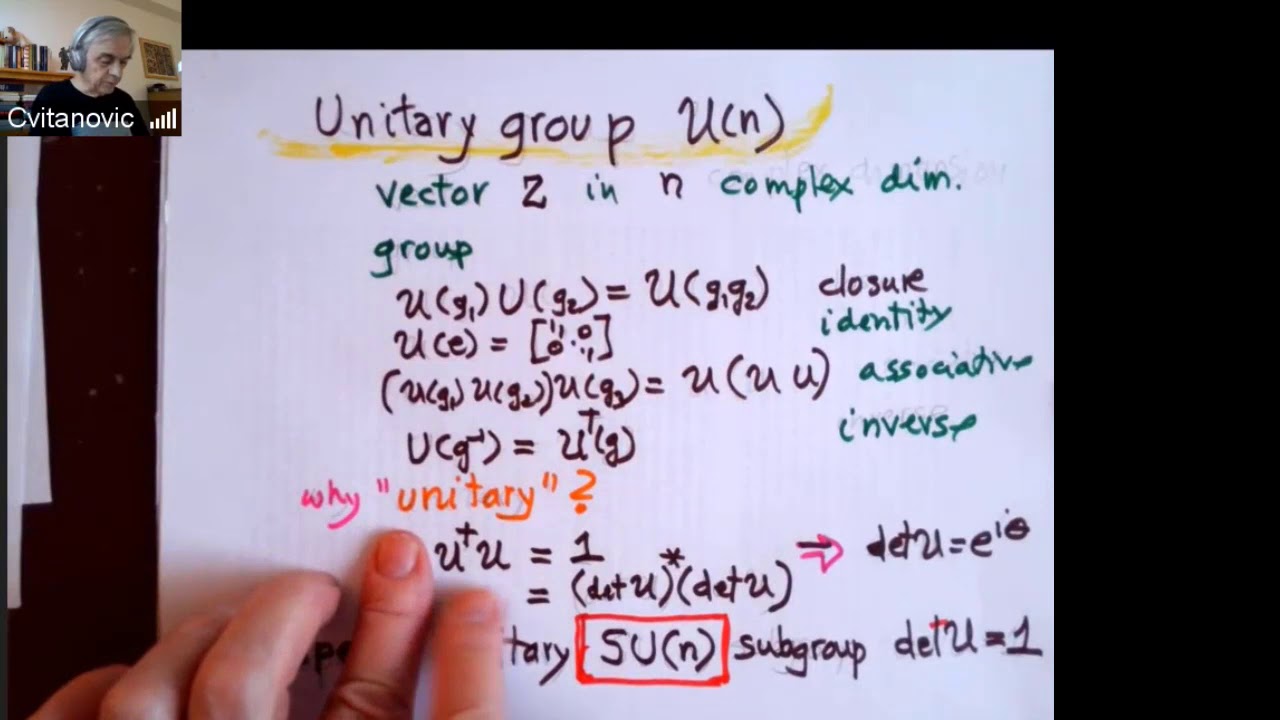 Cvitanovic
Unitary group U(n)
vector z in n complex dim.
group
U(g₁) U(g₂) = U(g₁g₂) closure
U(e) = [1 0 0 ⋱ 1] identity
(U(g₁) U(g₂)) U(g₃) = U (U U) associative
U(g⁻¹) = U†(g) inverse
why "unitary" ?
U†U = 1 ⇒ det U = e^{iθ}
= (det U)* (det U)
SU(n) subgroup det U = 1